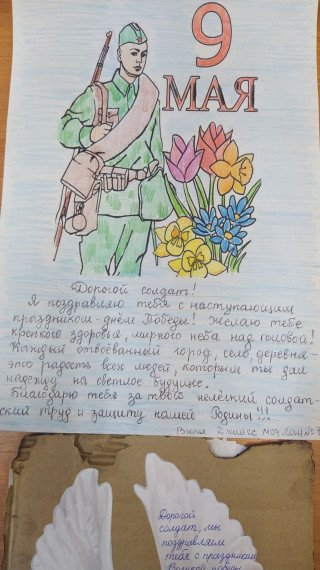 9
МАЯ
Дорогой солдат!
Я поздравляю тебя с наступающим
праздником-днём Победы! Желаю тебе
крепкого здоровья, мирного неба над головой!
Каждый отвоёванный город, село, деревня-
это радость всех людей, которым ты дал
надежду на светлое будущее.
Благодарю тебя за твой нелёгкий солдат-
ский труд и защиту нашей Родины!!!
Вика 2 класс МОУ
Дорогой
солдат, мы
поздравляем
тебя с праздником
Великой победы